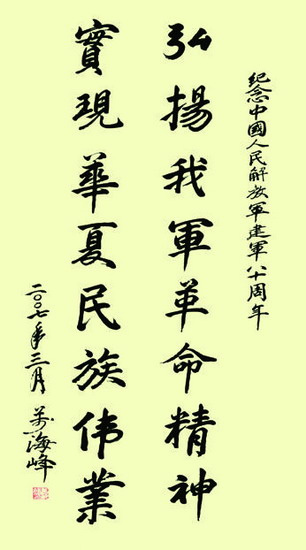 纪念中國人民解放軍建軍八十周年
弘揚我軍革命精神
實現華夏民族伟業
二〇〇七年三月 萬海峰